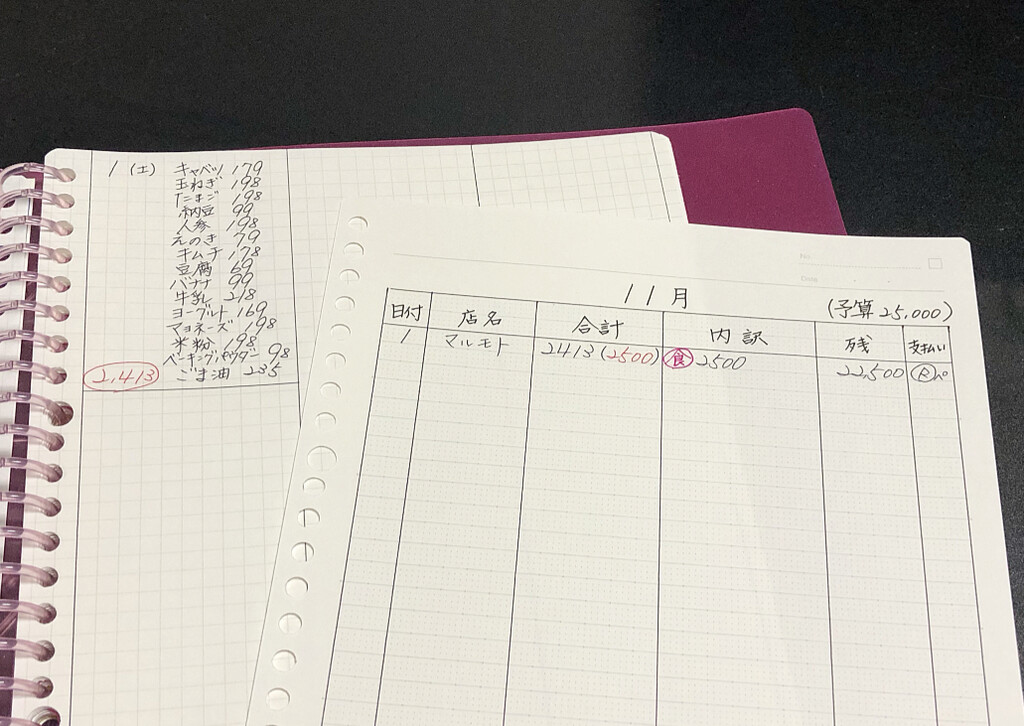 1 (土) キャベツ 179
玉ねぎ 198
たまご 198
納豆 99
人参 198
えのき 79
キムチ 178
豆腐 69
バナナ 99
牛乳 218
ヨーグルト 169
マヨネーズ 198
米粉 198
ベーキングパウダー 98
2,413 ごま油 235
11月 (予算25,000)
日付 店名 合計 内訳 残 支払い
1 マルモト 2413(2500) 食 2500 22,500